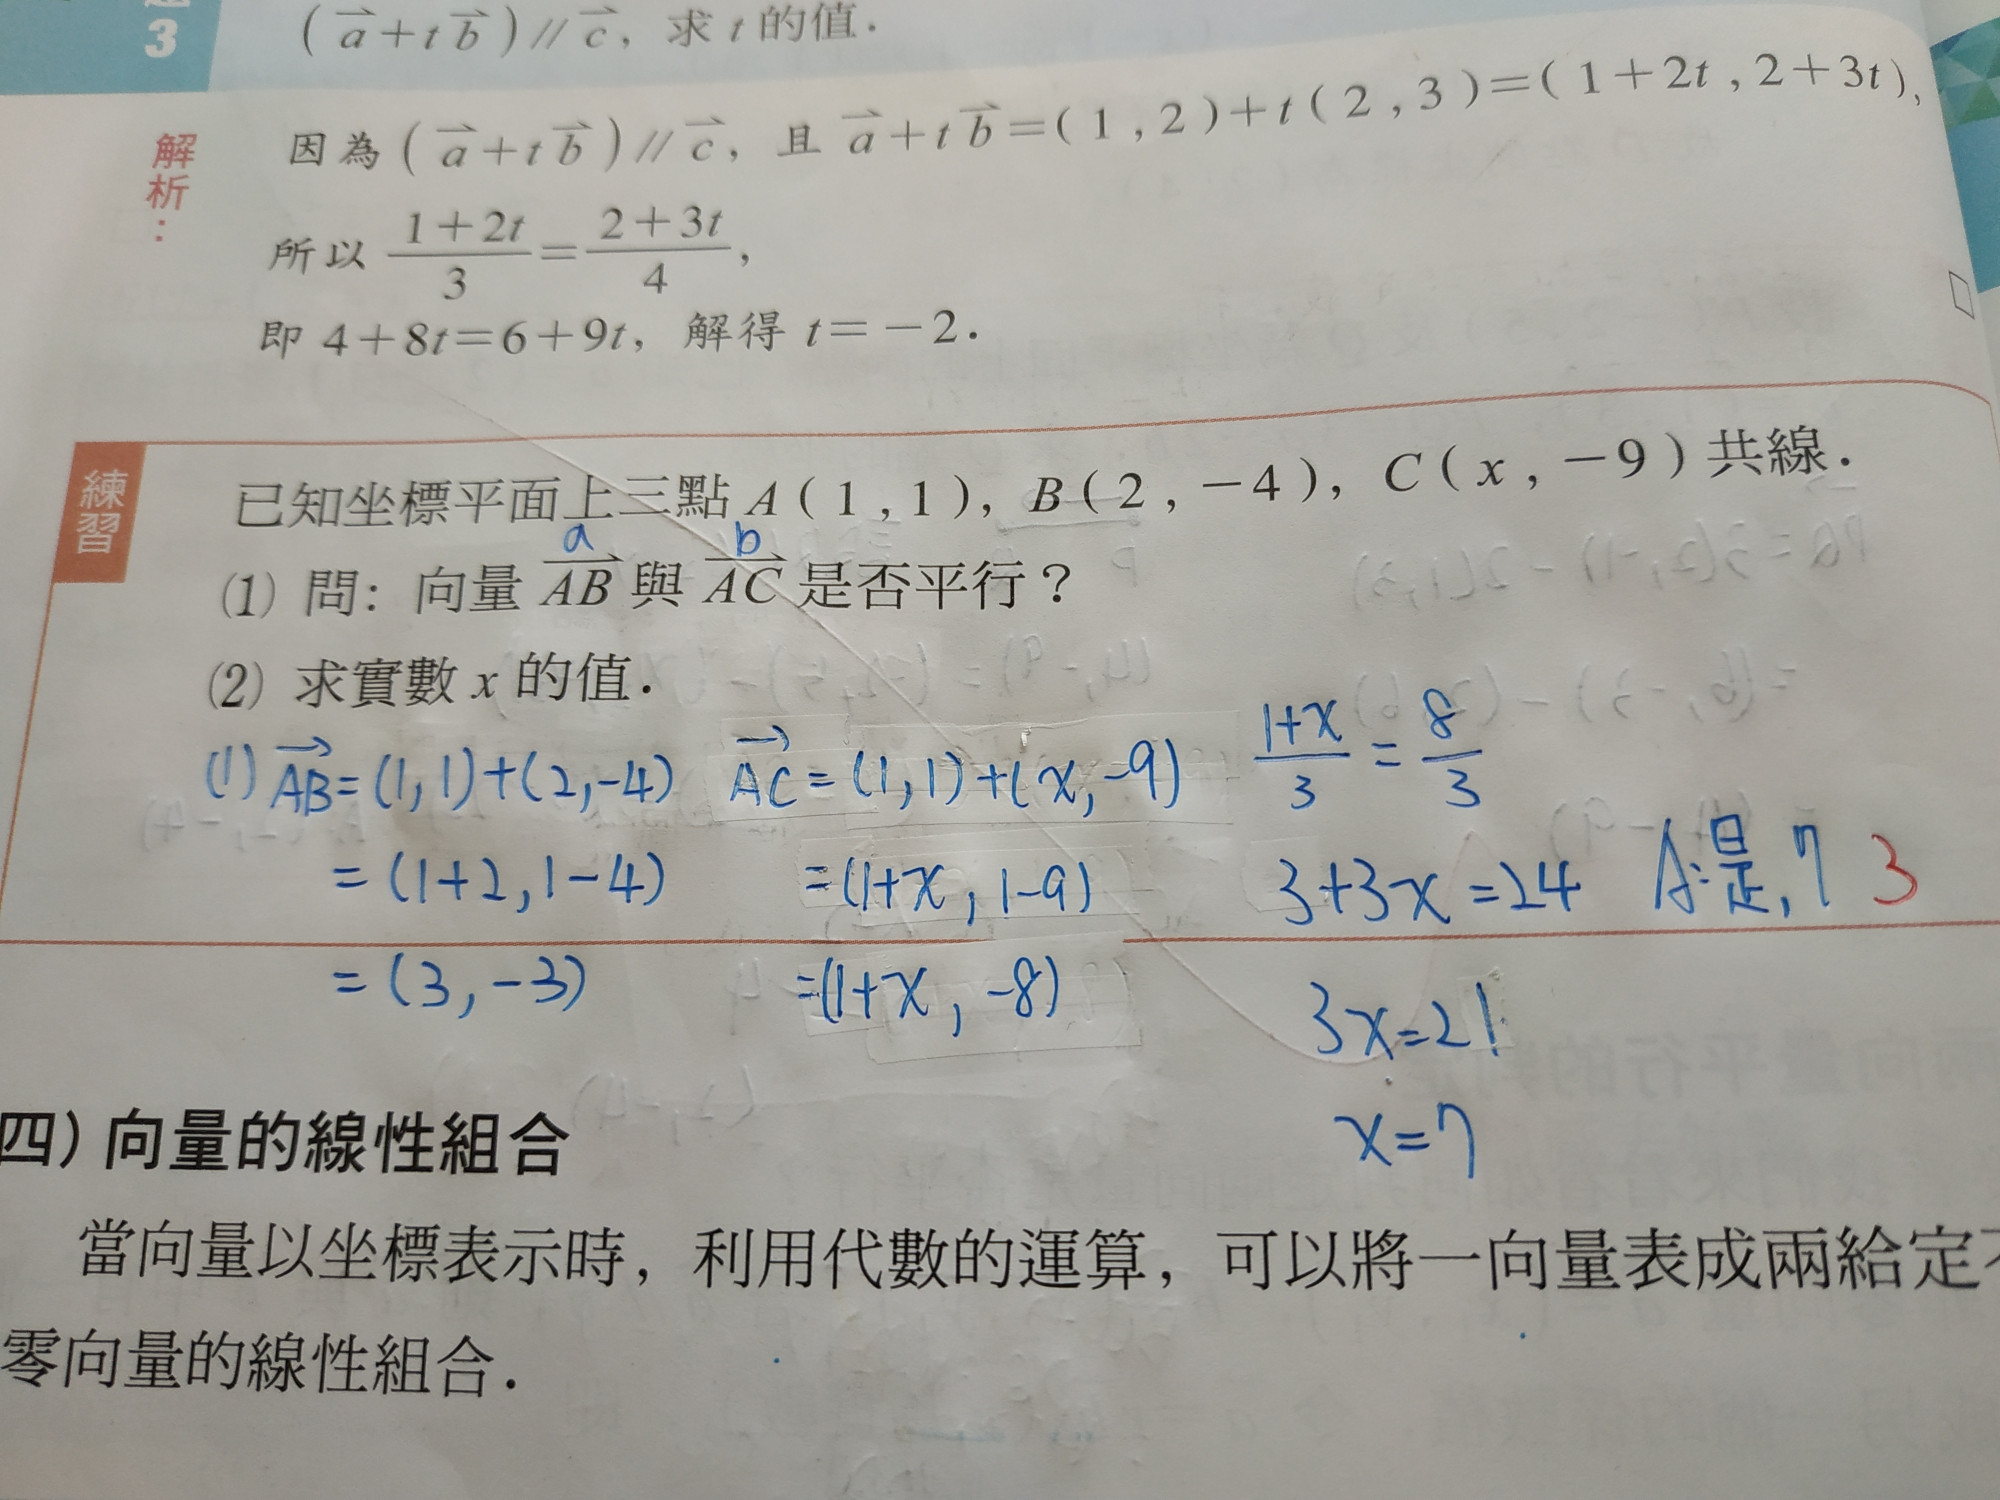 3
( a + t b ) // c , 求 t 的值．
解析：
因為 ( a + t b ) // c , 且 a + t b = ( 1 , 2 ) + t ( 2 , 3 ) = ( 1 + 2t , 2 + 3t ) ,
所以 (1+2t)/3 = (2+3t)/4 ,
即 4+8t=6+9t, 解得 t=-2．
練習
已知坐標平面上三點 A ( 1 , 1 ), B ( 2 , -4 ), C ( x , -9 ) 共線．
a b
(1) 問：向量 AB 與 AC 是否平行？
(2) 求實數 x 的值．
(1) AB = (1,1)+(2,-4) AC = (1,1)+(x,-9) (1+x)/3 = 8/3
= (1+2, 1-4) =(1+x, 1-9) 3+3x=24 A:是,7 3
= (3,-3) =(1+x, -8) 3x=21
x=7
四) 向量的線性組合
當向量以坐標表示時，利用代數的運算，可以將一向量表成兩給定
零向量的線性組合．